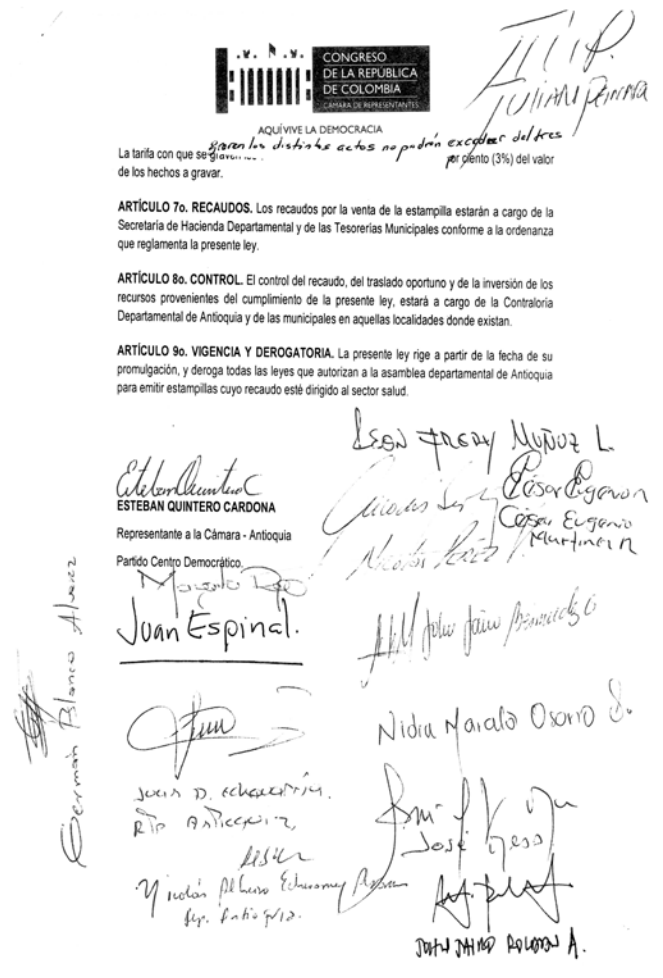 CONGRESO
DE LA REPÚBLICA
DE COLOMBIA
CÁMARA DE REPRESENTANTES
AQUÍ VIVE LA DEMOCRACIA
JULIAN
La tarifa con que se graven los distintos actos no podrán exceder del tres por ciento (3%) del valor
de los hechos a gravar.
ARTÍCULO 7o. RECAUDOS. Los recaudos por la venta de la estampilla estarán a cargo de la
Secretaría de Hacienda Departamental y de las Tesorerías Municipales conforme a la ordenanza
que reglamenta la presente ley.
ARTÍCULO 8o. CONTROL. El control del recaudo, del traslado oportuno y de la inversión de los
recursos provenientes del cumplimiento de la presente ley, estará a cargo de la Contraloría
Departamental de Antioquia y de las municipales en aquellas localidades donde existan.
ARTÍCULO 9o. VIGENCIA Y DEROGATORIA. La presente ley rige a partir de la fecha de su
promulgación, y deroga todas las leyes que autorizan a la asamblea departamental de Antioquia
para emitir estampillas cuyo recaudo esté dirigido al sector salud.
LEON FREDY MUÑOZ L.
Esteban Quintero C
ESTEBAN QUINTERO CARDONA
Representante a la Cámara - Antioquia
Partido Centro Democrático.
César Eugenio
César Eugenio
Martínez R
Nicolas Pérez
Margarita
Juan Espinal.
John Jairo Bermúdez
Germán Blanco Alvarez
Nidia Marcela Osorio S.
Juan D. Echavarría.
RTe Antioquia,
José
Nicolás Albeiro Echeverry
Rep. Antioquia.
JOHN JAIRO ROLDAN A.